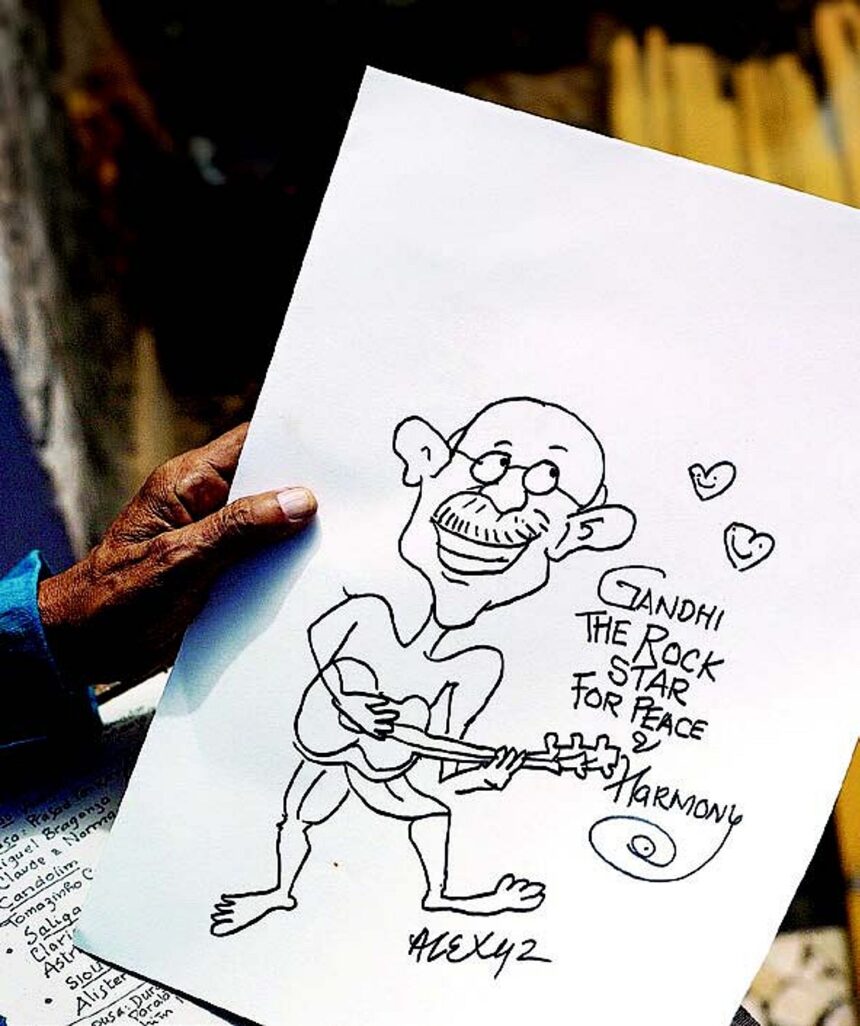 GANDHI
THE ROCK
STAR
FOR PEACE
&
HARMONY
ALEXYZ
Miguel Braganza
Claude & Norma
Candolim
Tomazinho C
• Saliga
Clari
Astr
• Siol
• Alister
ousa: Dura